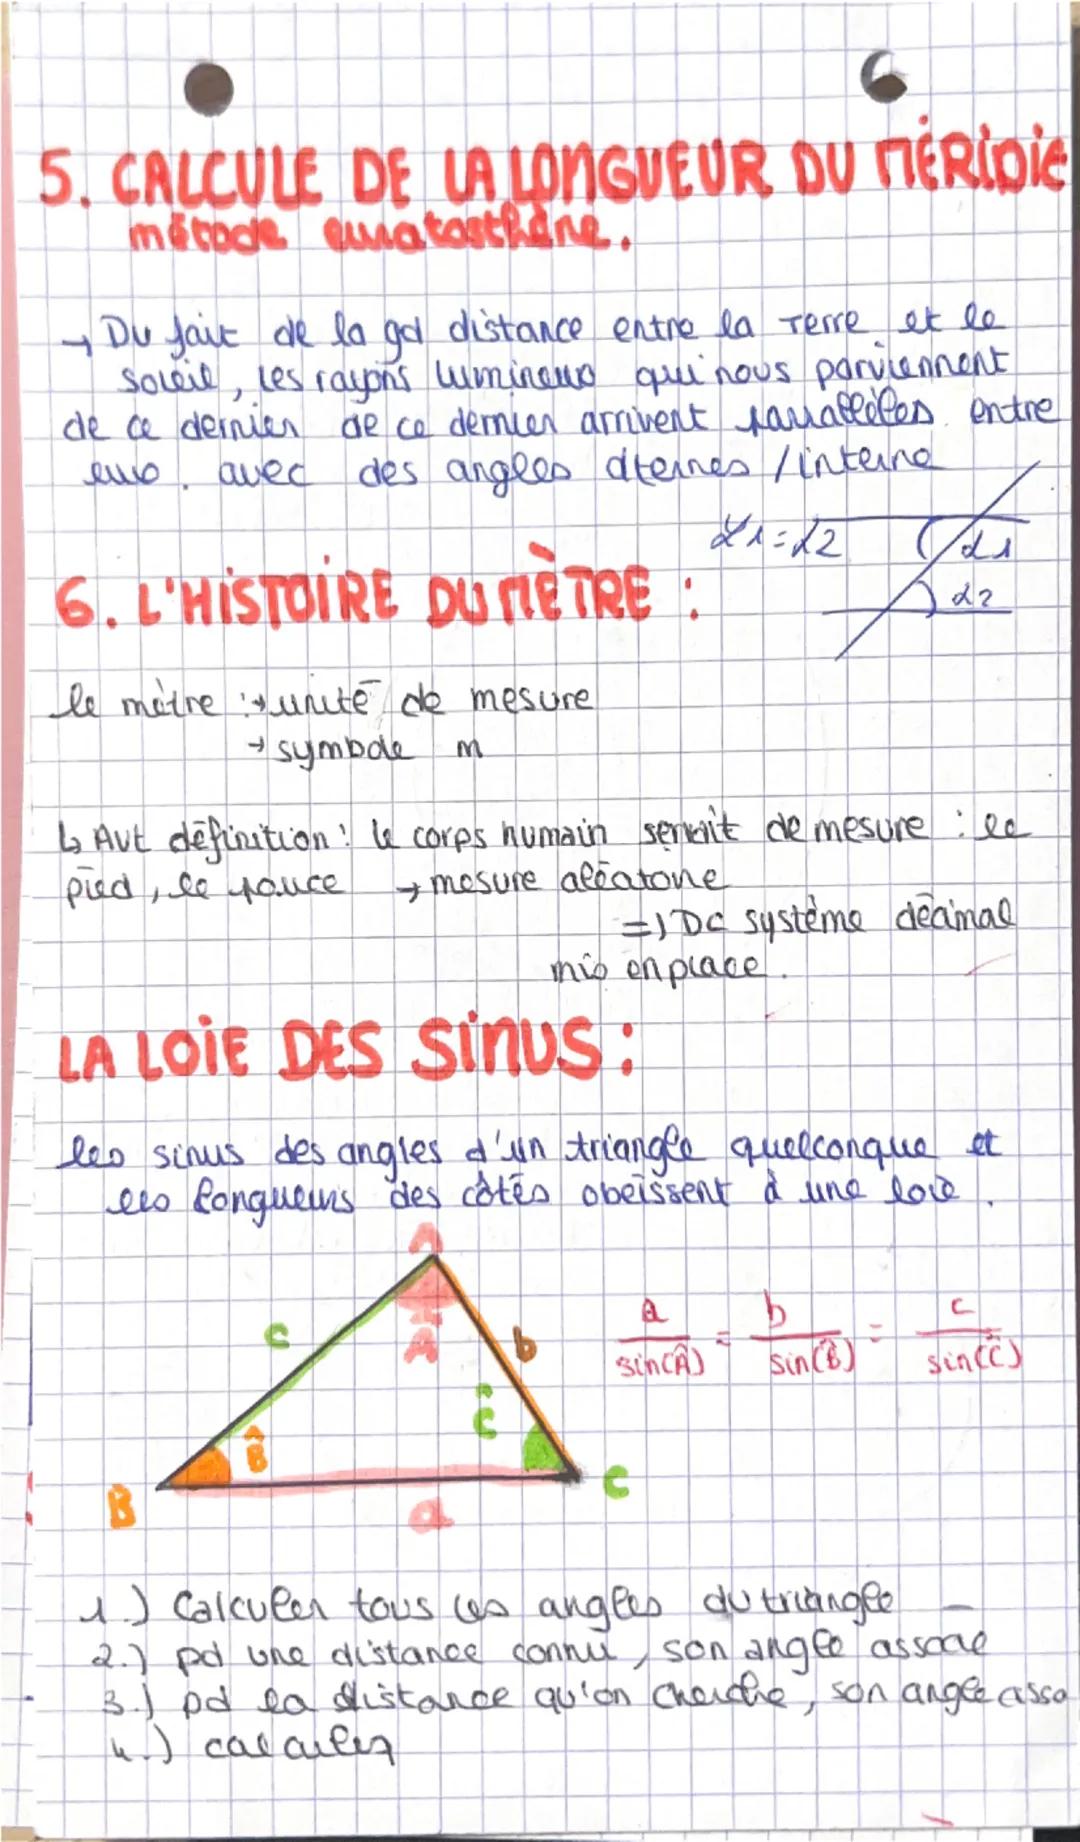 5. CALCULE DE LA LONGUEUR DU MÉRIDIE
métode euratosthène.
→ Du fait de la gd distance entre la Terre et le
soleil, les rayons lumineux qui nous parviennent
de ce dernier de ce dernier arrivent parallèles entre
eux. avec des angles alternes / interne
α1 = α2
α1
α2
6. L'HISTOIRE DU MÈTRE :
le mètre : → unité de mesure
→ symbole m
↳ Avt définition : le corps humain servait de mesure : le
pied, le pouce → mesure aléatoire
=> DC système décimal
mis en place.
LA LOIE DES SINUS :
les sinus des angles d'un triangle quelconque et
les longueurs des côtés obéissent à une loie.
A
c
Â
b
a/sin(Â) = b/sin(B̂) = c/sin(Ĉ)
B̂
Ĉ
B
a
C
1.) Calculer tous les angles du triangle
2.) pd une distance connu, son angle associé
3.) pd la distance qu'on cherche, son angle asso
4.) calculer